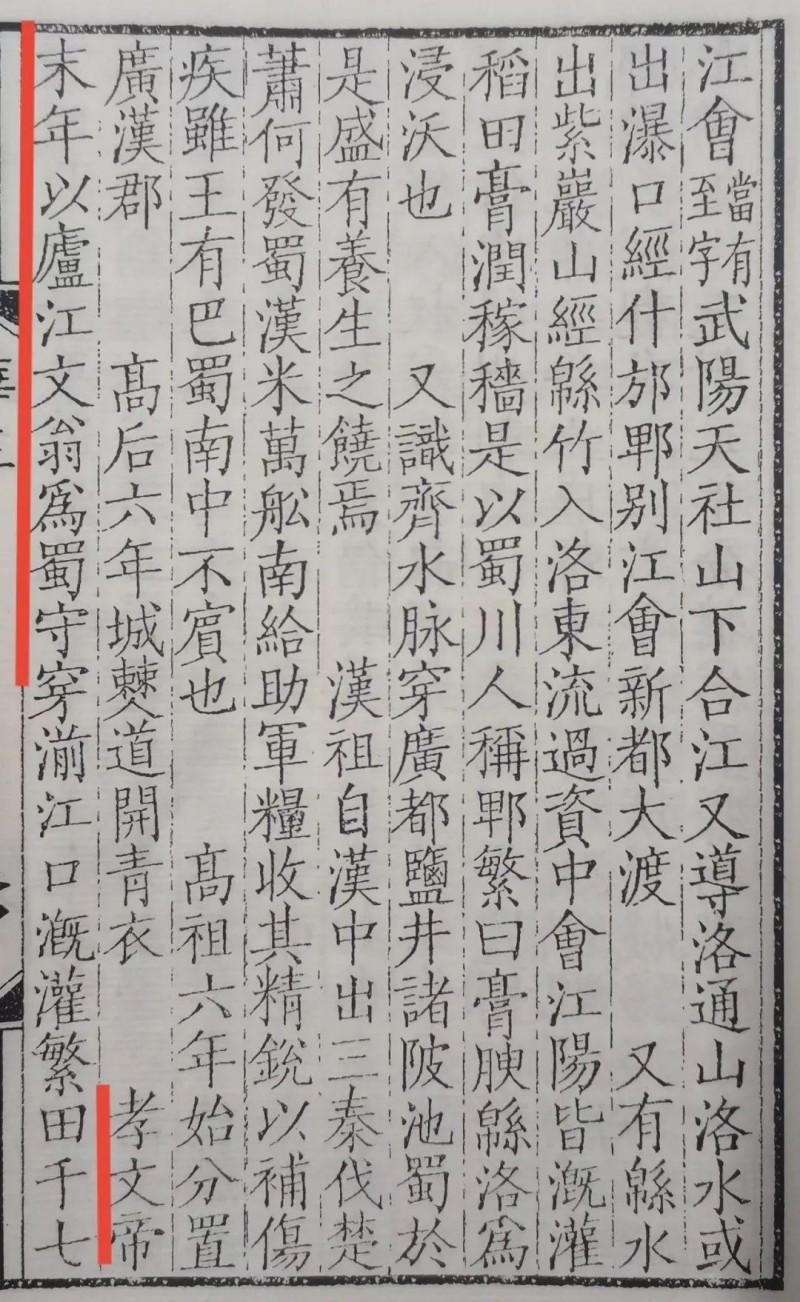 江會當有至字武陽天社山下合江又導洛通山洛水或
出瀑口經什邡郫别江會新都大渡　又有緜水
出紫巖山經緜竹入洛東流過資中會江陽皆漑灌
稻田膏潤稼穡是以蜀川人稱郫繁曰膏腴緜洛爲
浸沃也　又識齊水脉穿廣都鹽井諸陂池蜀於
是盛有養生之饒焉　漢祖自漢中出三秦伐楚
蕭何發蜀漢米萬舩南給助軍糧收其精銳以補傷
疾雖王有巴蜀南中不賓也　高祖六年始分置
廣漢郡　髙后六年城僰道開青衣　孝文帝
末年以廬江文翁爲蜀守穿湔江口漑灌繁田千七